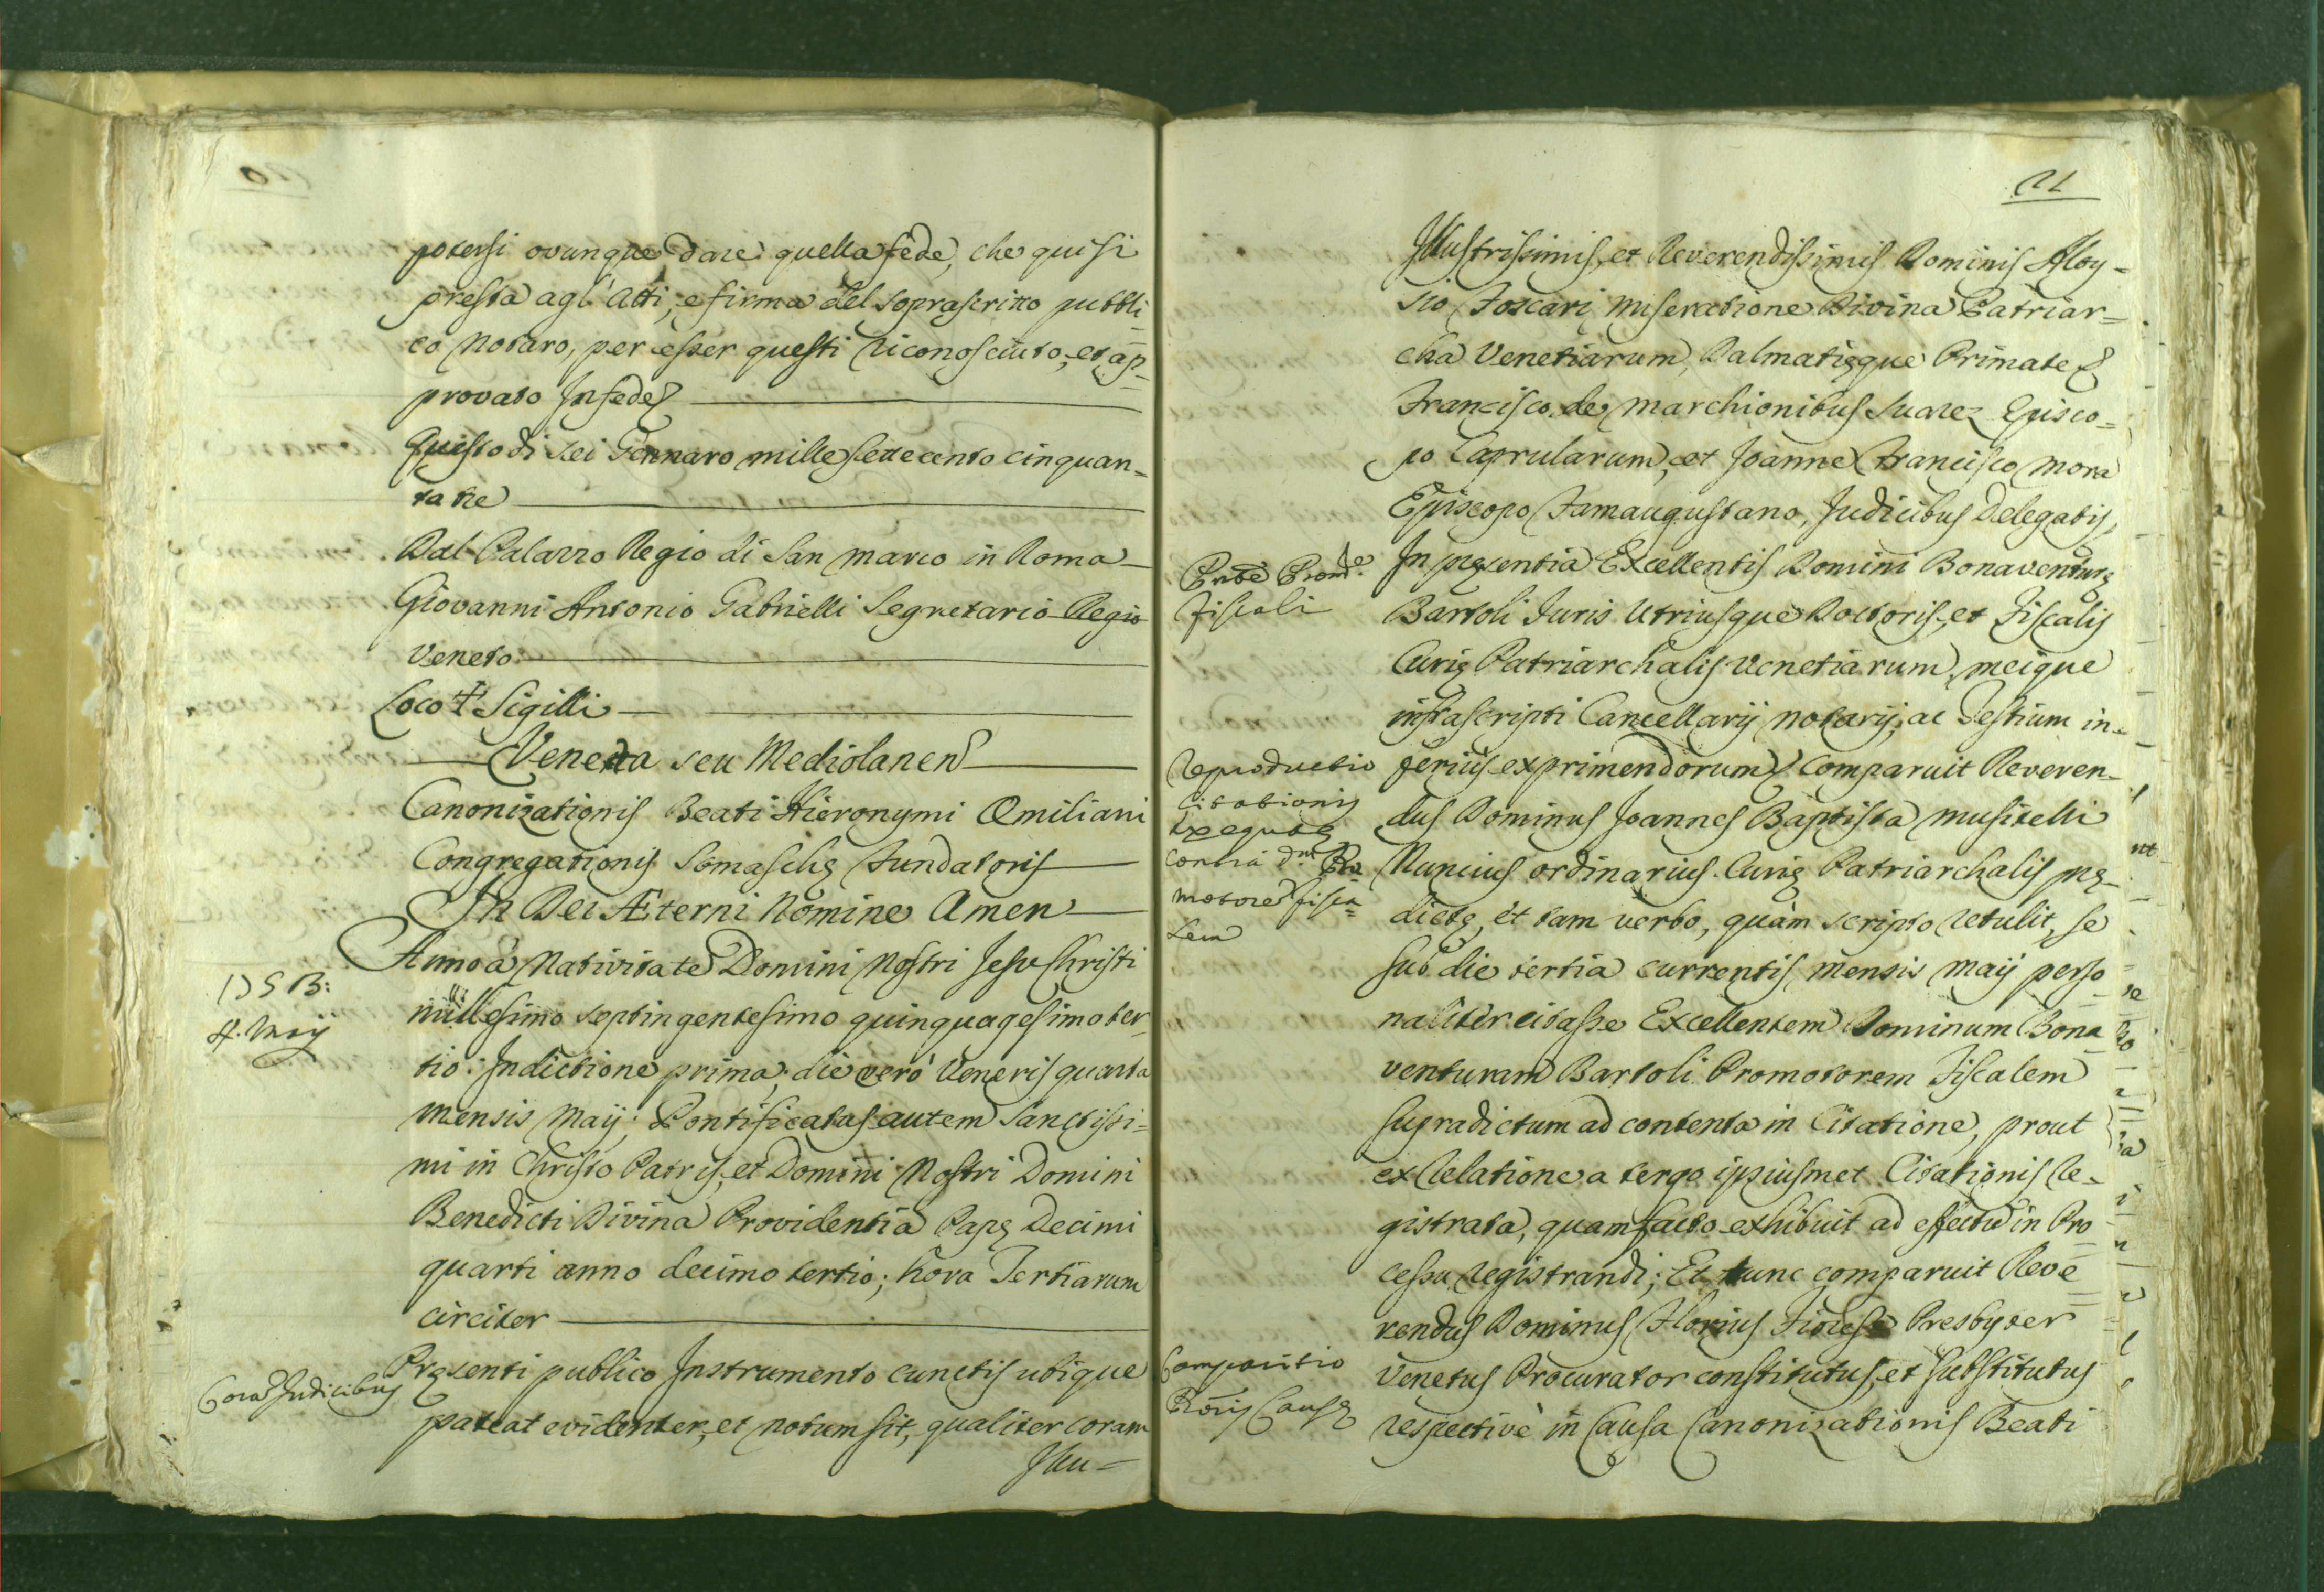 potersi ovunque dare quella fede, che qui si
presta agl'Atti, e firma del soprascritto pubbli=
co Notaro, per esser questi riconosciuto, et ap=
provato In fede
Questo dì sei Gennaro mille settecento cinquan=
ta tre
Dal Palazzo Regio di San Marco in Roma
Giovanni Antonio Gabrielli Segretario Regio
Veneto
Loco † Sigilli
Veneta seu Mediolanen
Canonizationis Beati Hieronymi Æmiliani
Congregationis Somaschę Fundatoris
In Dei Æterni Nomine Amen
1753:
4. Maij
Anno à Nativitate Domini Nostri Jesu Christi
millesimo septingentesimo quinquagesimo ter=
tio: Indictione prima; die verò Veneris quarta
mensis Maij; Pontificatus autem Sanctissi=
mi in Christo Patris, et Domini Nostri Domini
Benedicti Divina Providentia Papę Decimi
quarti anno decimo tertio; hora Tertiarum
circiter
Coram Judicibus
Pręsenti publico Instrumento cunctis ubique
pateat evidenter, et notum sit, qualiter coram
Illu=
21
Illustrissimis, et Reverendissimis Dominis Aloy=
sio Foscari Miseratione Divina Patriar=
cha Venetiarum, Dalmatięque Primate
Francisco de Marchionibus Suarez Episco=
po Caprularum, et Joanne Francisco Mora
Episcopo Famaugustano, Judicibus Delegatis,
fiscali
In pręsentia Excellentis Domini Bonaventurę
Bartoli Juris Utriusque Doctoris, et Fiscalis
Curię Patriarchalis Venetiarum, meique
infrascripti Cancellarij Notarij, ac Testium in=
Reproductio
Citationis
Exequtę
contra Dnm Pro
motorem fisca=
lem
ferius exprimendorum Comparuit Reveren=
dus Dominus Joannes Baptista Musitelli
Nuncius ordinarius Curię Patriarchalis prę=
dictę, et tam verbo, quàm scripto retulit, se
sub die tertia currentis mensis Maij perso=
naliter citasse Excellentem Dominum Bona=
venturam Bartoli Promotorem Fiscalem
supradictum ad contenta in Citatione, prout
ex Relatione a tergo ipsiusmet Citationis Re=
gistrata, quam facto exhibuit ad effectu in Pro=
cessu registrandi; Et tunc comparuit Reve=
rendus Dominus Florius Fiorese Presbyter
Comparitio
Proris Causę
Venetus Procurator constitutus, et substitutus
respectivè in Causa Canonizationis Beati